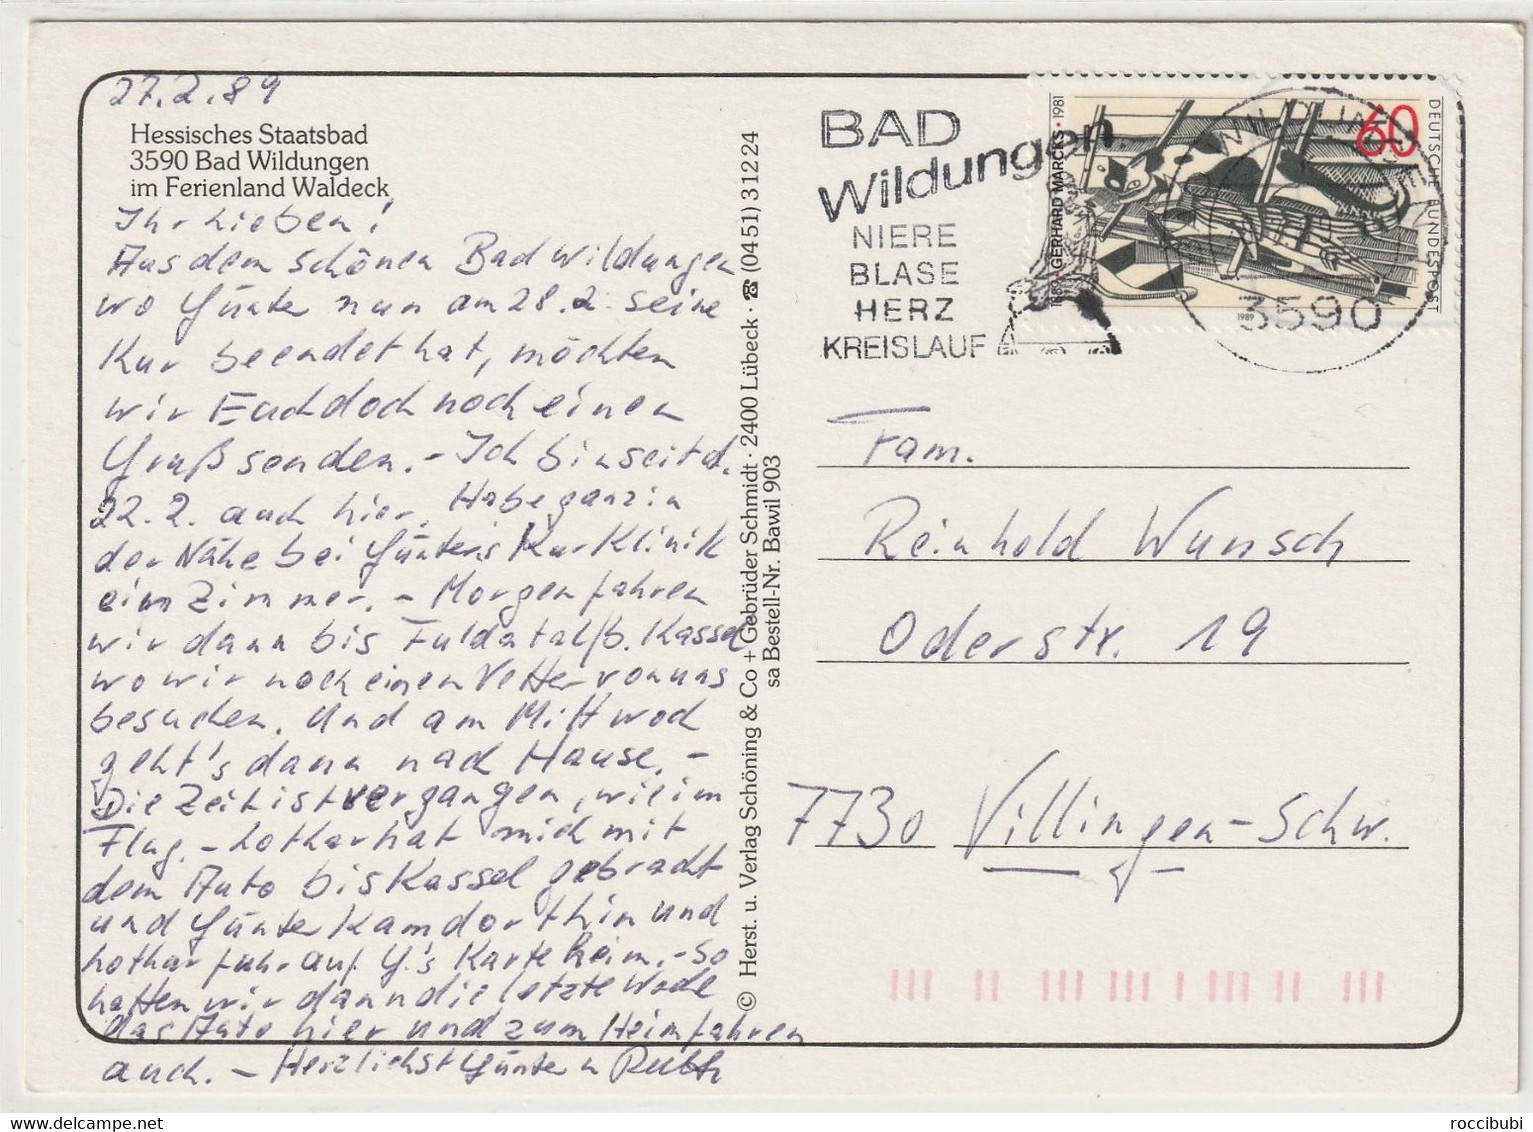 27.2.89
Hessisches Staatsbad
3590 Bad Wildungen
im Ferienland Waldeck
Ihr Lieben!
Aus dem schönen Bad Wildungen
wo Günter nun am 28.2. seine
Kur beendet hat, möchten
wir Euch doch noch einen
Gruß senden. - Ich bin seit d.
22.2. auch hier. Habe ganz in
der Nähe bei Günters Kurklinik
ein Zimmer. - Morgen fahren
wir dann bis Fuldatal/b. Kassel
wo wir noch einen Vetter von uns
besuchen. Und am Mittwoch
geht's dann nach Hause. -
Die Zeit ist vergangen, wie im
Flug. - Lothar hat mich mit
dem Auto bis Kassel gebracht
und Günter kam dorthin und
Lothar fuhr auf G.'s Karte heim. - So
hatten wir dann die letzte Woche
das Auto hier und zum Heimfahren
auch. - Herzlichst Günter u Ruth
© Herst. u. Verlag Schöning & Co + Gebrüder Schmidt · 2400 Lübeck · ☎ (04 51) 3 12 24
sa Bestell-Nr. Bawil 903
BAD
Wildungen
NIERE
BLASE
HERZ
KREISLAUF
1889 • GERHARD MARCKS • 1981
60
DEUTSCHE BUNDESPOST
1989
3590
Fam.
Reinhold Wunsch
Oderstr. 19
7730 Villingen-Schw.
roccibubi